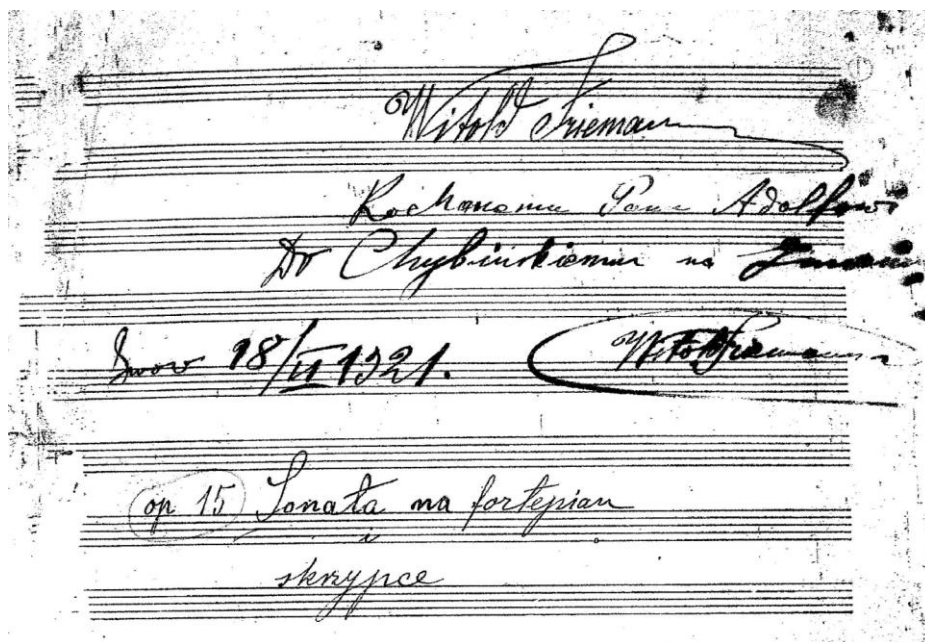 Witold Friemann
Kochanemu Panu Adolfowi
Dr Chybińskiemu na
Lwow 18/II 1921. Witold Friemann
op 15 Sonata na fortepian
i
skrzypce